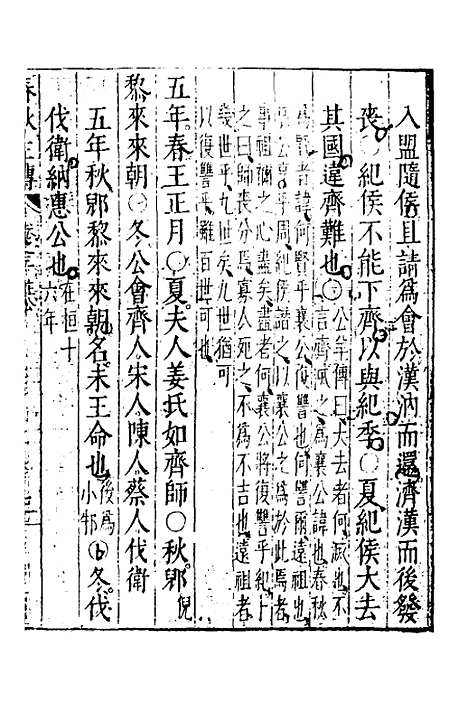 入盟隨侯且請為會於漢汭而還濟漢而後發
喪〇紀侯不能下齊以與紀季〇夏紀侯大去
其國違齊難也
公羊傳曰大去者何滅也不
言齊滅之為襄公諱也春秋
為賢者諱何賢乎襄公復讐爾遠祖也
哀公亨乎周紀侯譖之以襄公之為於此焉者
事祖禰之心盡矣盡者何襄公將復讐乎紀卜
之曰師喪分焉寡人死之不為不吉也遠祖者
幾世乎九世矣九世猶可
以復讐乎雖百世可也
五年春王正月〇夏夫人姜氏如齊師〇秋郳
倪
黎來來朝〇冬公會齊人宋人陳人蔡人伐衛
五年秋郳黎來來朝名未王命也
後為
小邾
冬伐
伐衛納惠公也
在桓十
六年
春秋三傳